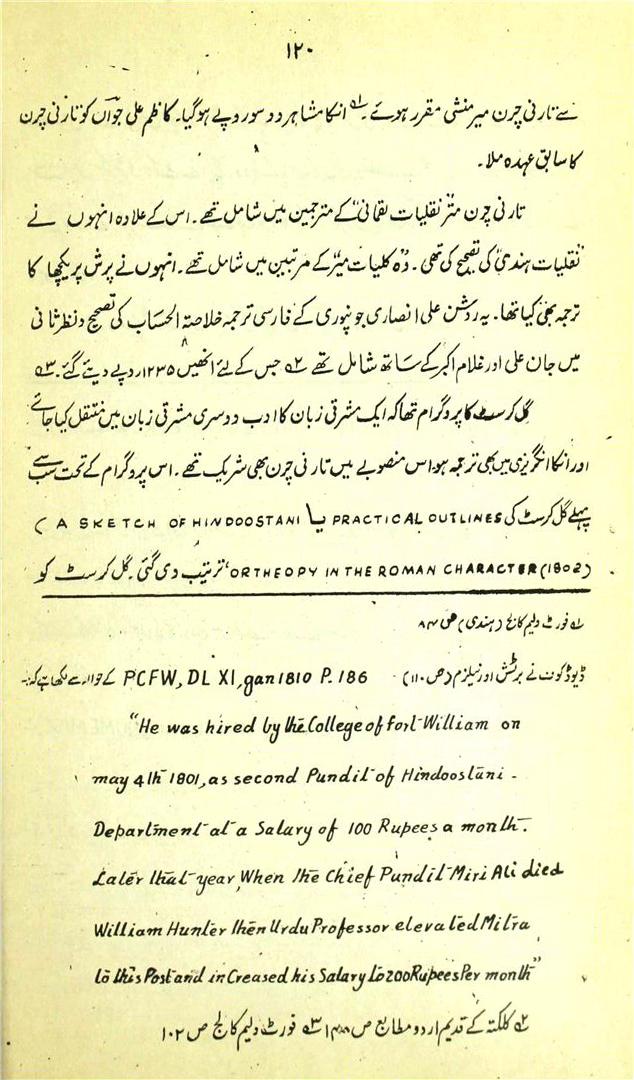 ۱۲۰
سے تارنی چرن میر منشی مقرر ہوئے۔ ۱؎ انکا مشاہر دو سو روپے ہوگیا۔ کاظم علی جواں کو تارنی چرن
کا سابق عہدہ ملا۔
تارنی چرن متر نقلیات لقمانی کے مترجمین میں شامل تھے۔ اس کے علاوہ انہوں نے
"نقلیات ہندی" کی تصحیح کی تھی۔ وہ کلیات میر کے مرتبین میں شامل تھے۔ انہوں نے پرش پریکچھا کا
ترجمہ بھی کیا تھا۔ یہ روشن علی انصاری جونپوری کے فارسی ترجمہ خلاصتہ الحساب کی تصحیح و نظر ثانی
میں جان علی اور غلام اکبر کے ساتھ شامل تھے ۲؎ جس کے لئے انھیں ۱۲۳۵ روپے دیئے گئے۔ ۳؎
گل کرسٹ کا پروگرام تھا کہ ایک مشرقی زبان کا ادب دوسری مشرقی زبان میں منتقل کیا جائے
اور انکا انگریزی میں بھی ترجمہ ہو، اس منصوبے میں تارنی چرن بھی شریک تھے۔ اس پروگرام کے تحت سب سے
پہلے گل کرسٹ کی PRACTICAL OUTLINES یا A SKETCH OF HINDOOSTANI )
ORTHEOPY IN THE ROMAN CHARACTER (1802) ترتیب دی گئی۔ گل کرسٹ کو
۱؎ فورٹ ولیم کالج (ہندی) ص ۸۴
ڈیوڈ کوف نے برٹش اورنیلزم (ص ۱۱۰) PCFW, DL XI, gan 1810 P. 186 کے حوالے سے لکھا ہے کہ:-
"He was hired by the College of fort William on
may 4th 1801, as second Pundit of Hindoostani -
Department at a Salary of 100 Rupees a month.
Later that year, When the Chief Pundit Miri Ali died
William Hunter then Urdu Professor elevated Mitra
to this Post and in Creased his Salary to 200 Rupees Per month"
۲؎ کلکتہ کے قدیم اردو مطابع ص ۳؎ فورٹ ولیم کالج ص ۱۰۲